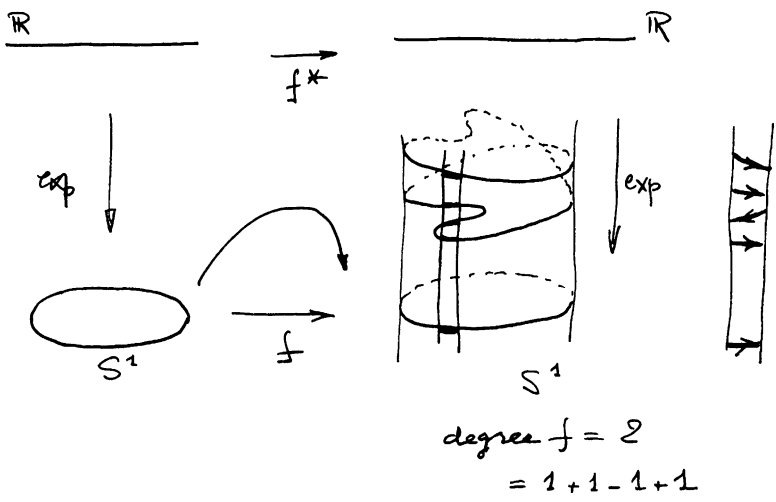 ℝ
ℝ
f*
exp
exp
f
S¹
S¹
degree f = 2
= 1 + 1 - 1 + 1